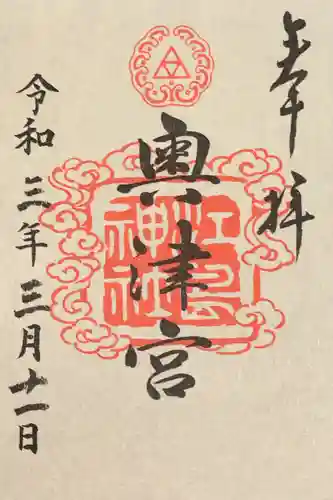 奉拝
奥津宮
江島神社
令和三年三月十一日